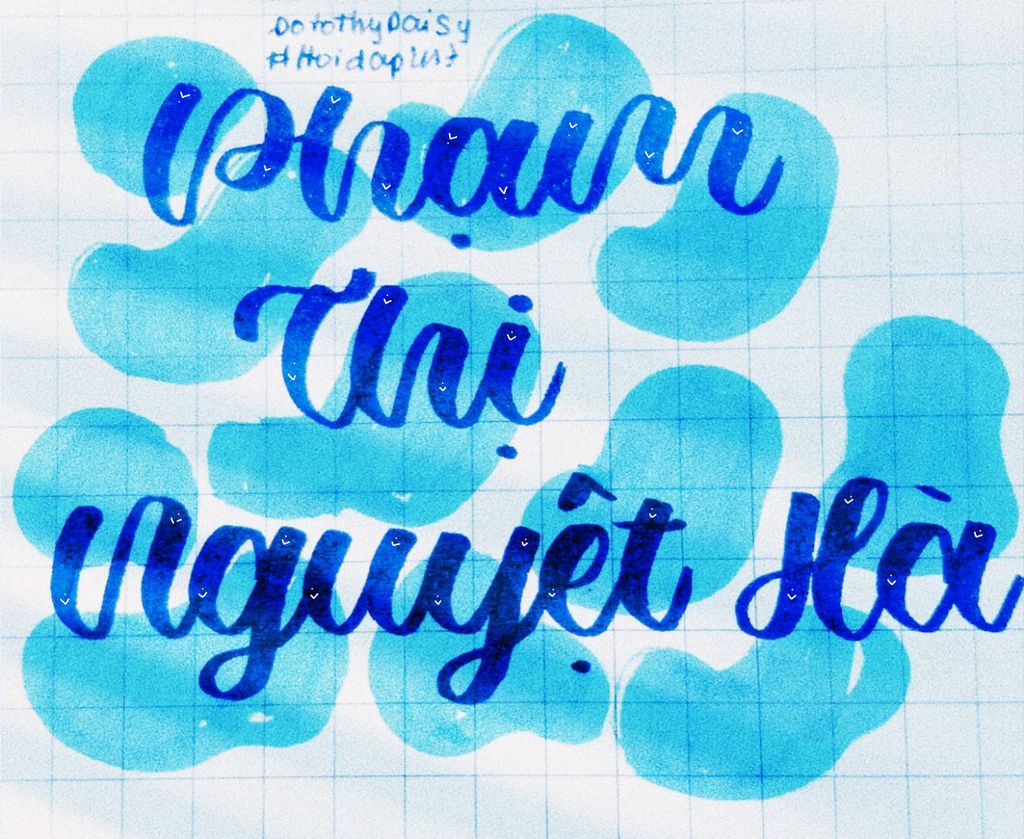 DorothyDaisy
#Hoidap247
Phạm
Thị
Nguyệt Hà